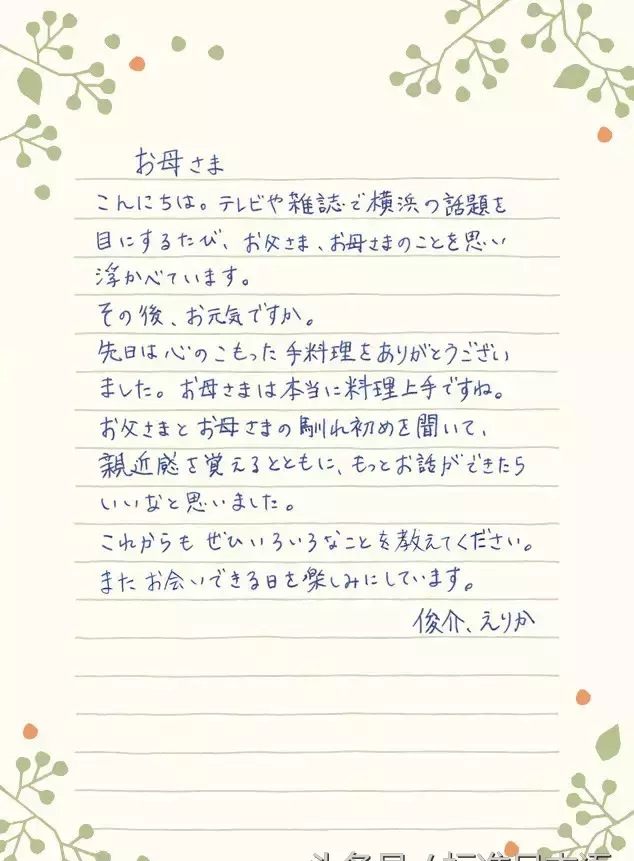 お母さま
こんにちは。テレビや雑誌で横浜の話題を
目にするたび、お父さま、お母さまのことを思い
浮かべています。
その後、お元気ですか。
先日は心のこもった手料理をありがとうござい
ました。お母さまは本当に料理上手ですね。
お父さまとお母さまの馴れ初めを聞いて、
親近感を覚えるとともに、もっとお話ができたら
いいなと思いました。
これからもぜひいろいろなことを教えてください。
またお会いできる日を楽しみにしています。
俊介、えりか